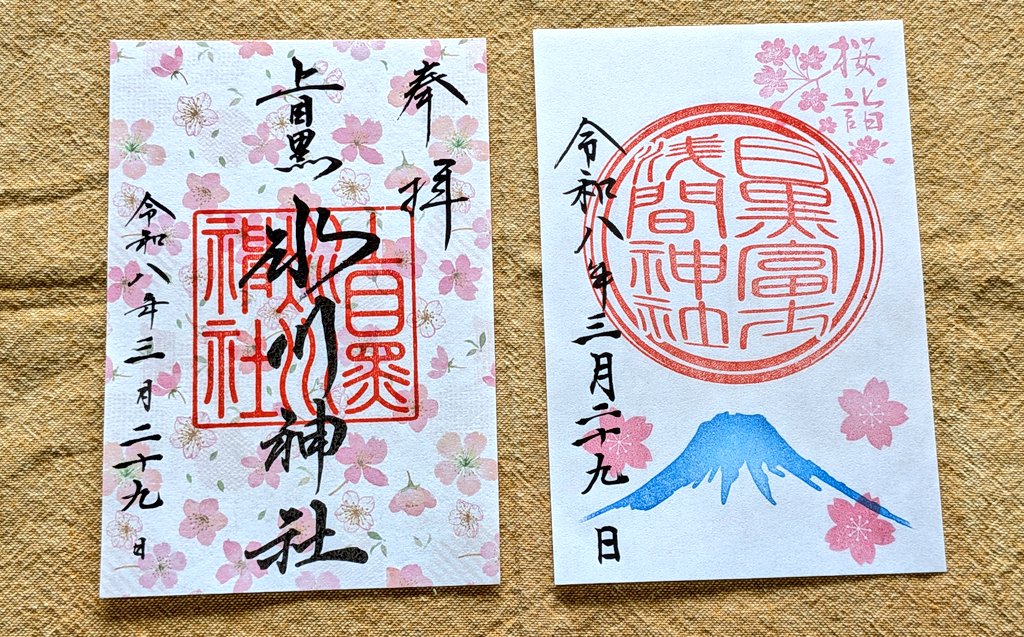 奉拝
上目黒氷川神社
上目黒
氷川
神社
令和八年三月二十九日
桜詣
目黒富士
浅間神社
令和八年三月二十九日